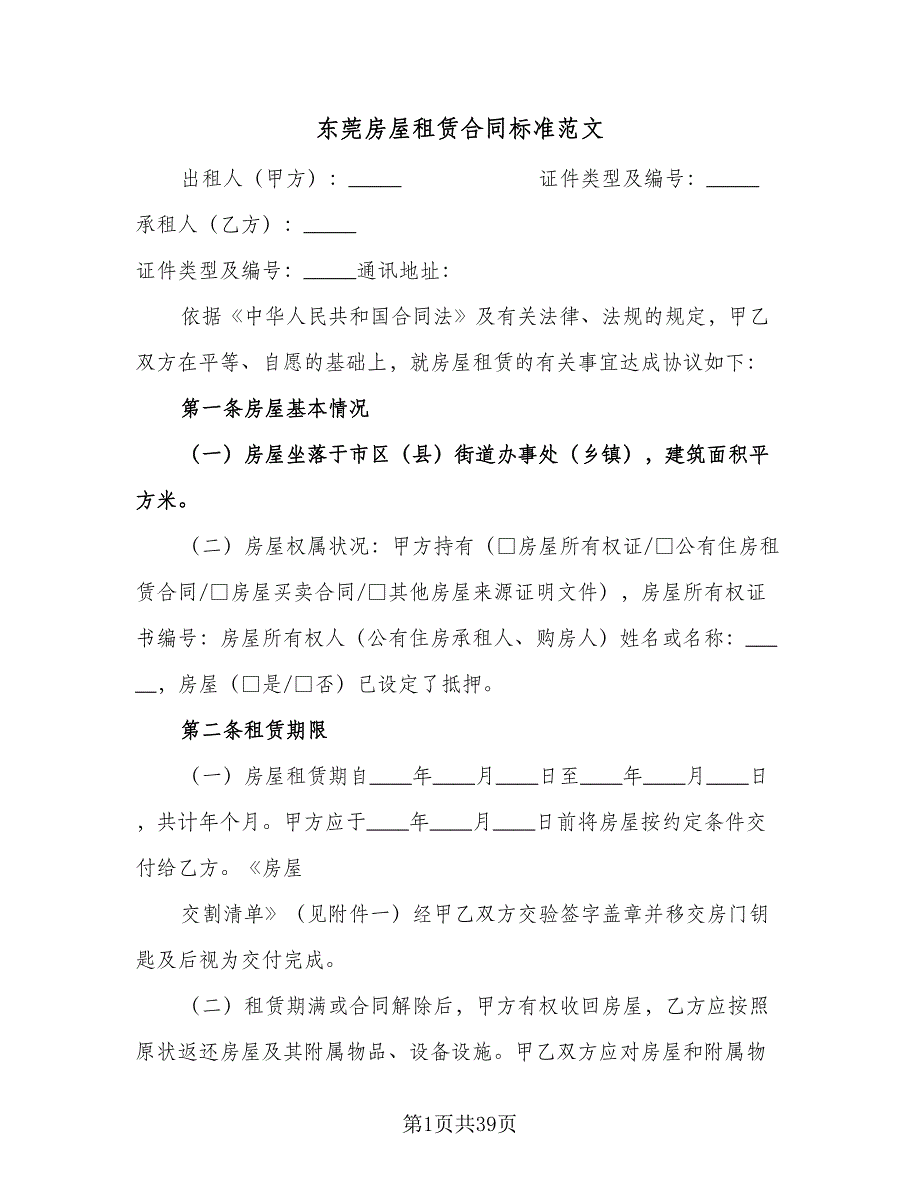 东莞房屋租赁合同标准范文
出租人（甲方）：_____ 证件类型及编号：_____
承租人（乙方）：_____
证件类型及编号：_____通讯地址：
依据《中华人民共和国合同法》及有关法律、法规的规定，甲乙
双方在平等、自愿的基础上，就房屋租赁的有关事宜达成协议如下：
第一条房屋基本情况
（一）房屋坐落于市区（县）街道办事处（乡镇），建筑面积平
方米。
（二）房屋权属状况：甲方持有（□房屋所有权证/□公有住房租
赁合同/□房屋买卖合同/□其他房屋来源证明文件），房屋所有权证
书编号：房屋所有权人（公有住房承租人、购房人）姓名或名称：___
__，房屋（□是/□否）已设定了抵押。
第二条租赁期限
（一）房屋租赁期自____年____月____日至____年____月____日
，共计年个月。甲方应于____年____月____日前将房屋按约定条件交
付给乙方。《房屋
交割清单》（见附件一）经甲乙双方交验签字盖章并移交房门钥
匙及后视为交付完成。
（二）租赁期满或合同解除后，甲方有权收回房屋，乙方应按照
原状返还房屋及其附属物品、设备设施。甲乙双方应对房屋和附属物
第1页共39页